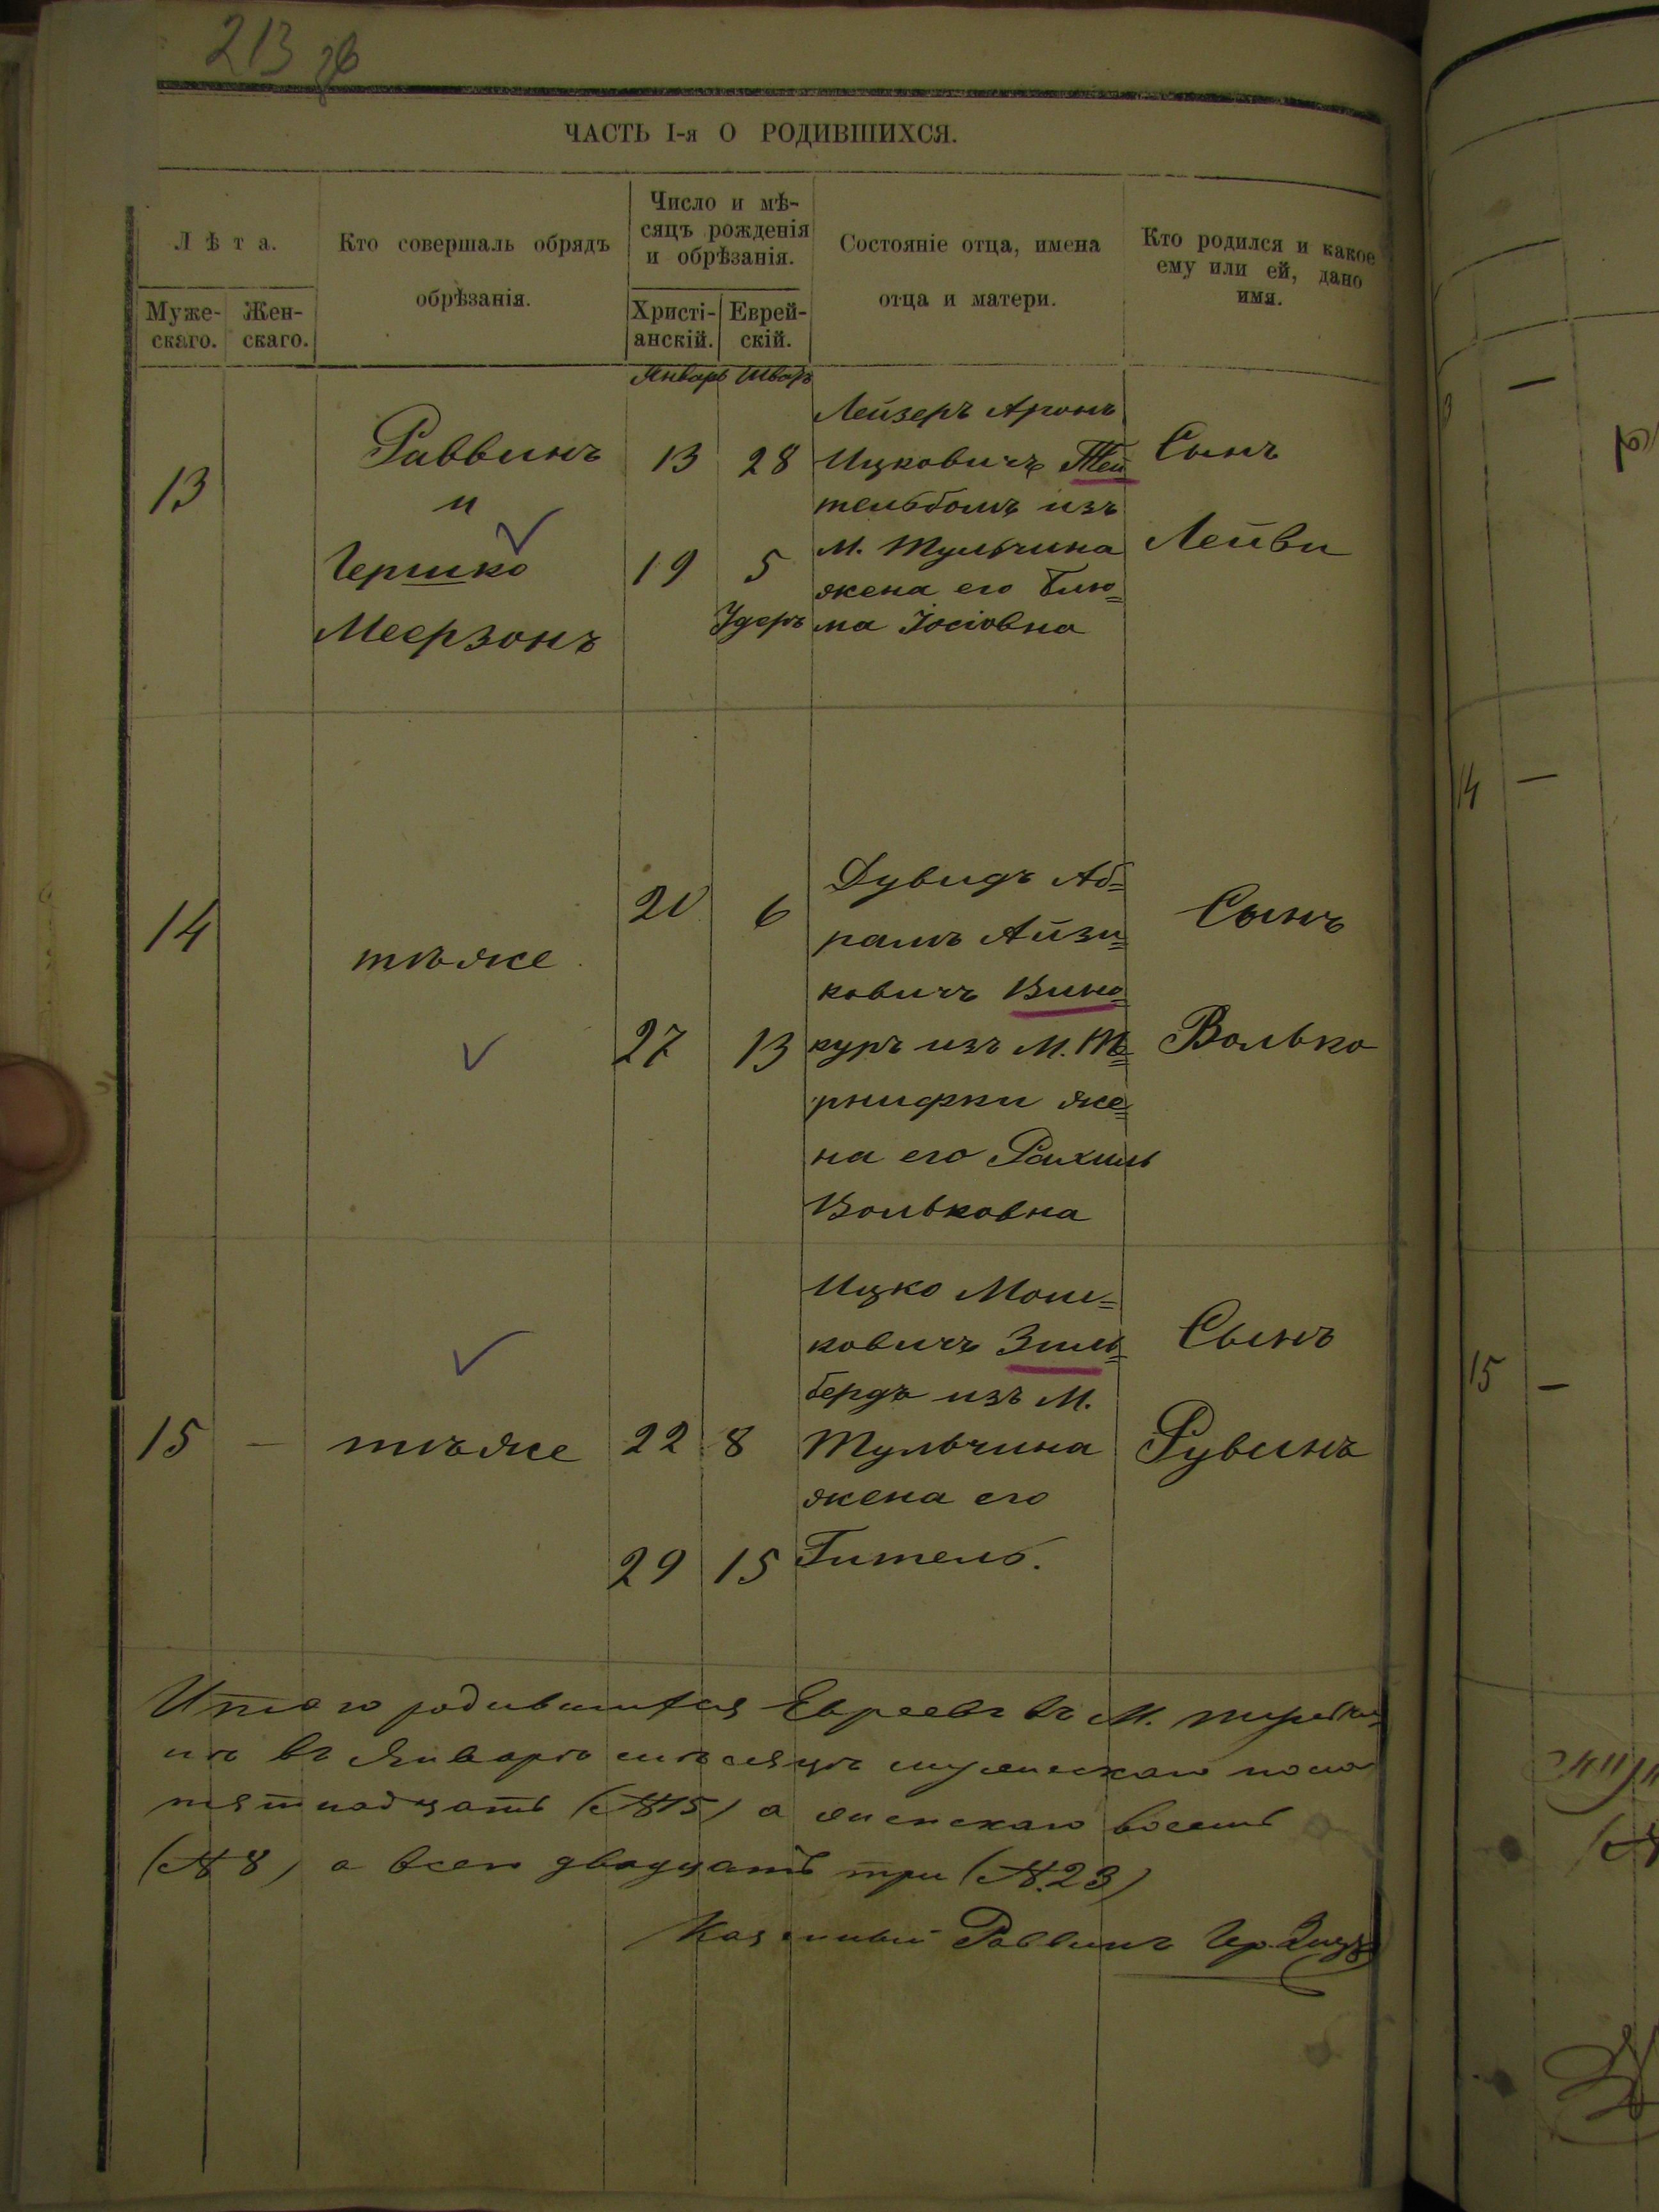 213 зв
ЧАСТЬ I-я О РОДИВШИХСЯ.
Лѣта.
Муже-
скаго.
Жен-
скаго.
Кто совершаль обрядъ
обрѣзанія.
Число и мѣ-
сяцъ рожденія
и обрѣзанія.
Христі-
анскій.
Еврей-
скій.
Состояніе отца, имена
отца и матери.
Кто родился и какое
ему или ей, дано
имя.
Январь Шватъ
13
Раввинъ
и
Гершко
Меерзонъ
13 28
19 5
Удеръ
Лейзеръ Аронъ
Ицковичъ Тей
тельбомъ изъ
М. Тульчина
жена его Блю=
ма Іосіовна
Сынъ
Лейви
14
тѣже
20 6
27 13
Дувидъ Аб=
рамъ Айзи=
ковичъ Вино=
куръ изъ М.
жe=
на его Рахиль
Вольковна
Сынъ
Волько
15 —
тѣже
22 8
29 15
Ицко Мош=
ковичъ Зиль=
бердъ изъ М.
Тульчина
жена его
Гитель.
Сынъ
Рувинъ
Итого родившихся Евреевъ въ М.
въ Январѣ мѣсяцѣ мужескаго пола
пятнадцать (№15) а женскаго восемь
(№8) а всего двадцать три (№.23)
Казенный Раввинъ
14 —
15 —